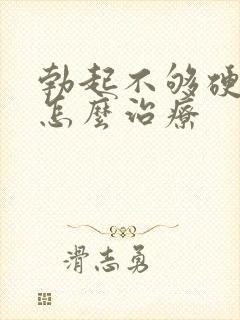 勃起不够硬
怎麼治療
滑志勇